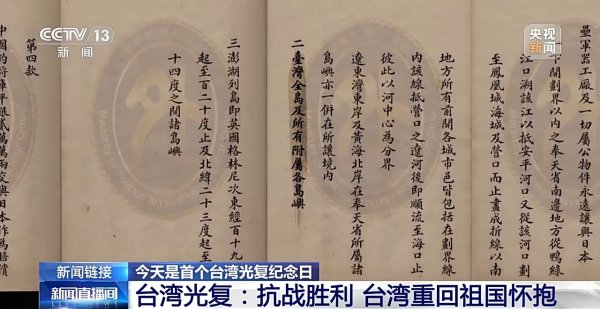 CCTV 13
新闻
央视
新闻
壘軍器工廠及一切屬公物件永遠讓與日本
下開劃界以内之奉天省南邊地方從鴨綠
江口溯該江以抵安平河口又從該河口劃
至鳳凰城海城及營口而止畫成折線以南
地方所有前開各城市邑皆包括在劃界線
内該線抵營口之遼河後即順流至海口止
彼此以河中心為分界
遼東灣東岸及黃海北岸在奉天省所屬諸
島嶼亦一併在所讓境内
二臺灣全島及所有附屬各島嶼
三澎湖列島即英國格林尼次東經百十九
起至百二十度止及北緯二十三度起至
十四度之間諸島嶼
第四款
中國約將庫平銀貳萬萬兩交與日本作為賠償
新闻链接 今天是首个台湾光复纪念日
新闻直播间 台湾光复：抗战胜利 台湾重回祖国怀抱